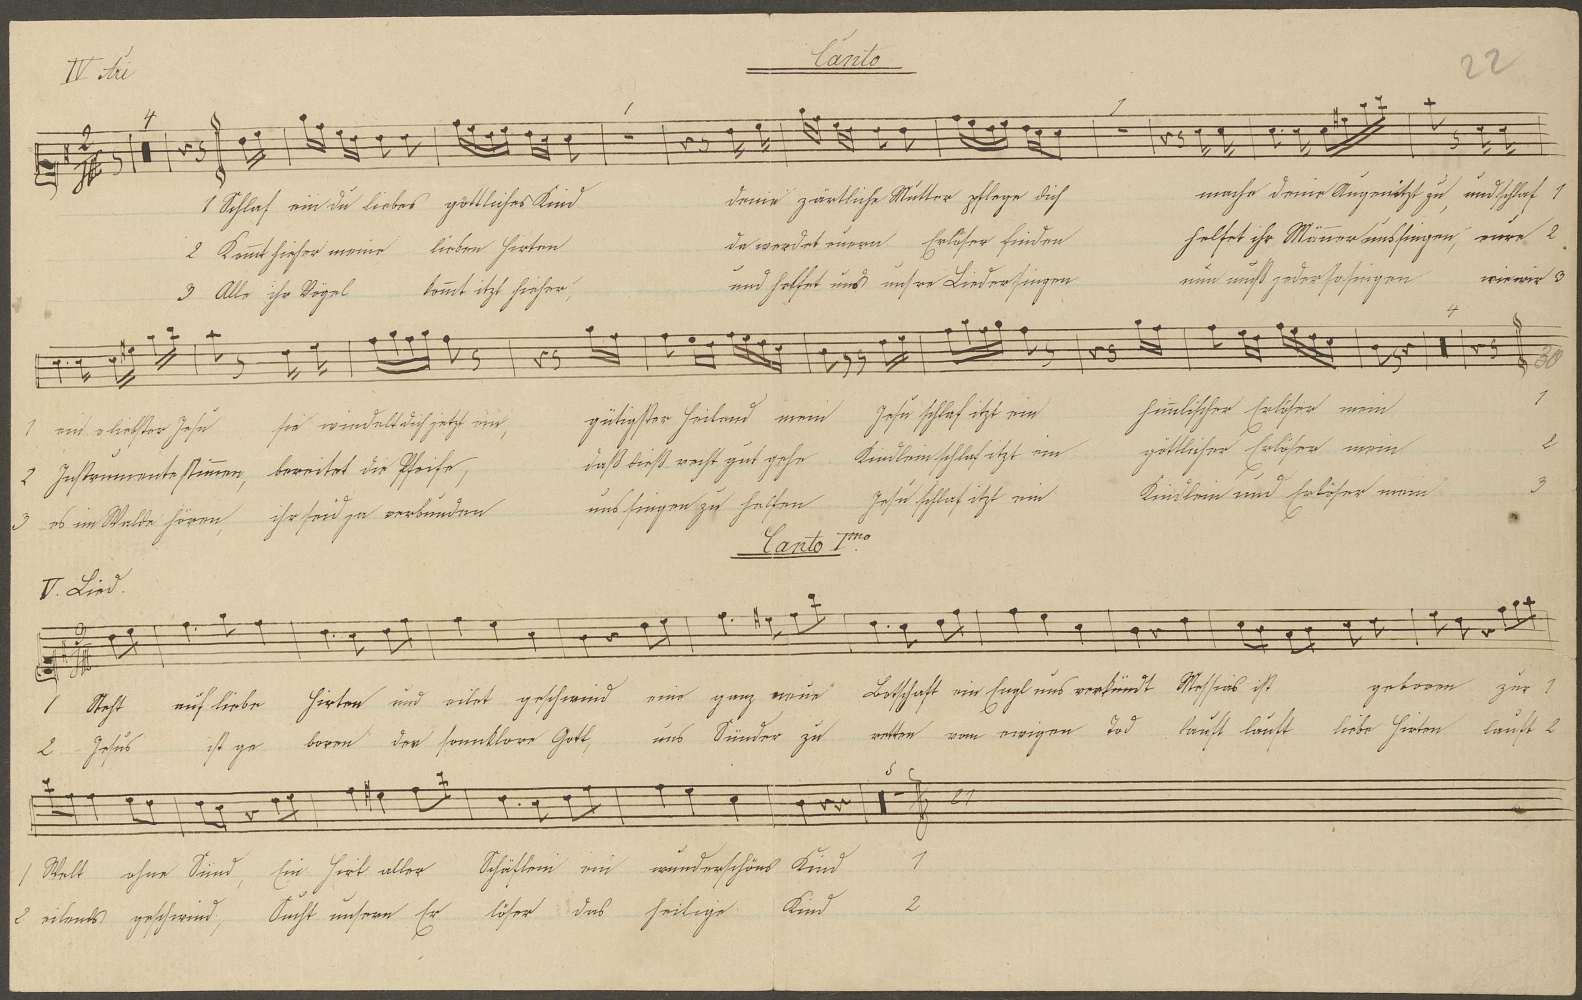 IV Ari
Canto
22
4
1
1
1 Schlaf ein du liebes göttliches Kind deine zärtliche Mutter pflege dich mache deine Augen itzt zu, und schlaf 1
2 Komt hieher meine lieben Hirten da werdet euern Erlöser finden helfet ihr Männer uns singen, eure 2
3 Alle ihr Vögel komt itzt hieher, und helfet uns unsre Lieder singen nun muß jeder so singen wie wir 3
4
30
1 ein o liebster Jesu sie windelt dich jetzt ein, gütigster Heiland mein Jesu schlaf itzt ein himlischer Erlöser mein 1
2 Instrumente stimen, bereitet die Pfeife, daß dieß recht gut gehe Kindlein schlaf itzt ein göttlicher Erlöser mein 2
3 es im Walde hören, ihr seid ja verbunden uns singen zu helfen Jesu schlaf itzt ein Kindlein und Erlöser mein 3
Canto Imo
V. Lied.
1 Steht auf liebe Hirten und eilet geschwind eine ganz neue Botschaft ein Engl uns verkündt Messias ist geboren zur 1
2 Jesus ist ge boren der sonnklare Gott, uns Sünder zu retten vom ewigen Tod lauft lauft liebe Hirten lauft 2
5
21
1 Welt ohne Sünd, Ein Hirt aller Schäflein ein wunderschöns Kind 1
2 eilends geschwind, Sucht unsern Er löser das heilige Kind 2